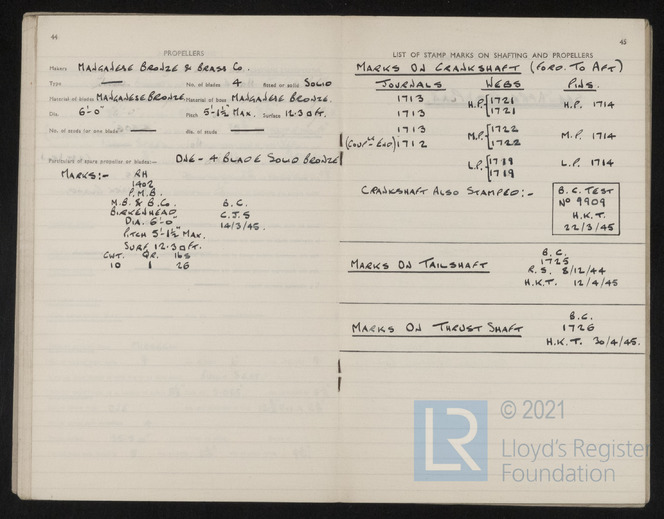 44
PROPELLERS
Makers MANGANESE BRONZE & BRASS CO.
Type — No. of blades 4 fitted or solid SOLID
Material of blades MANGANESE BRONZE. Material of boss MANGANESE BRONZE.
Dia. 6'-0" Pitch 5'-1½" MAX. Surface 12.30 FT.
No. of studs (for one blade) — dia. of studs —
Particulars of spare propeller or blades:— ONE - 4 BLADE SOLID BRONZE
MARKS:- RH
1402
P.M.B.
M.B. & B.CO. B.C.
BIRKENHEAD C.J.S
DIA. 6'-0" 14/3/45.
PITCH 5'-1½" MAX.
SURF. 12.3 □ FT.
CWT. QR. lbs
10 1 26
45
LIST OF STAMP MARKS ON SHAFTING AND PROPELLERS
MARKS ON CRANKSHAFT (FORD. TO AFT)
JOURNALS WEBS PINS.
1713 H.P. {1721 H.P. 1714
1713 1721
1713 M.P. {1722 M.P. 1714
(COUPLG END) 1712 1722
L.P. {1719 L.P. 1714
1719
CRANKSHAFT ALSO STAMPED:- B.C. TEST
No 9909
H.K.T.
22/3/45
MARKS ON TAILSHAFT B.C.
1725
R.S. 8/12/44
H.K.T. 12/4/45
MARKS ON THRUST SHAFT B.C.
1726
H.K.T. 30/4/45.
LR © 2021
Lloyd's Register
Foundation